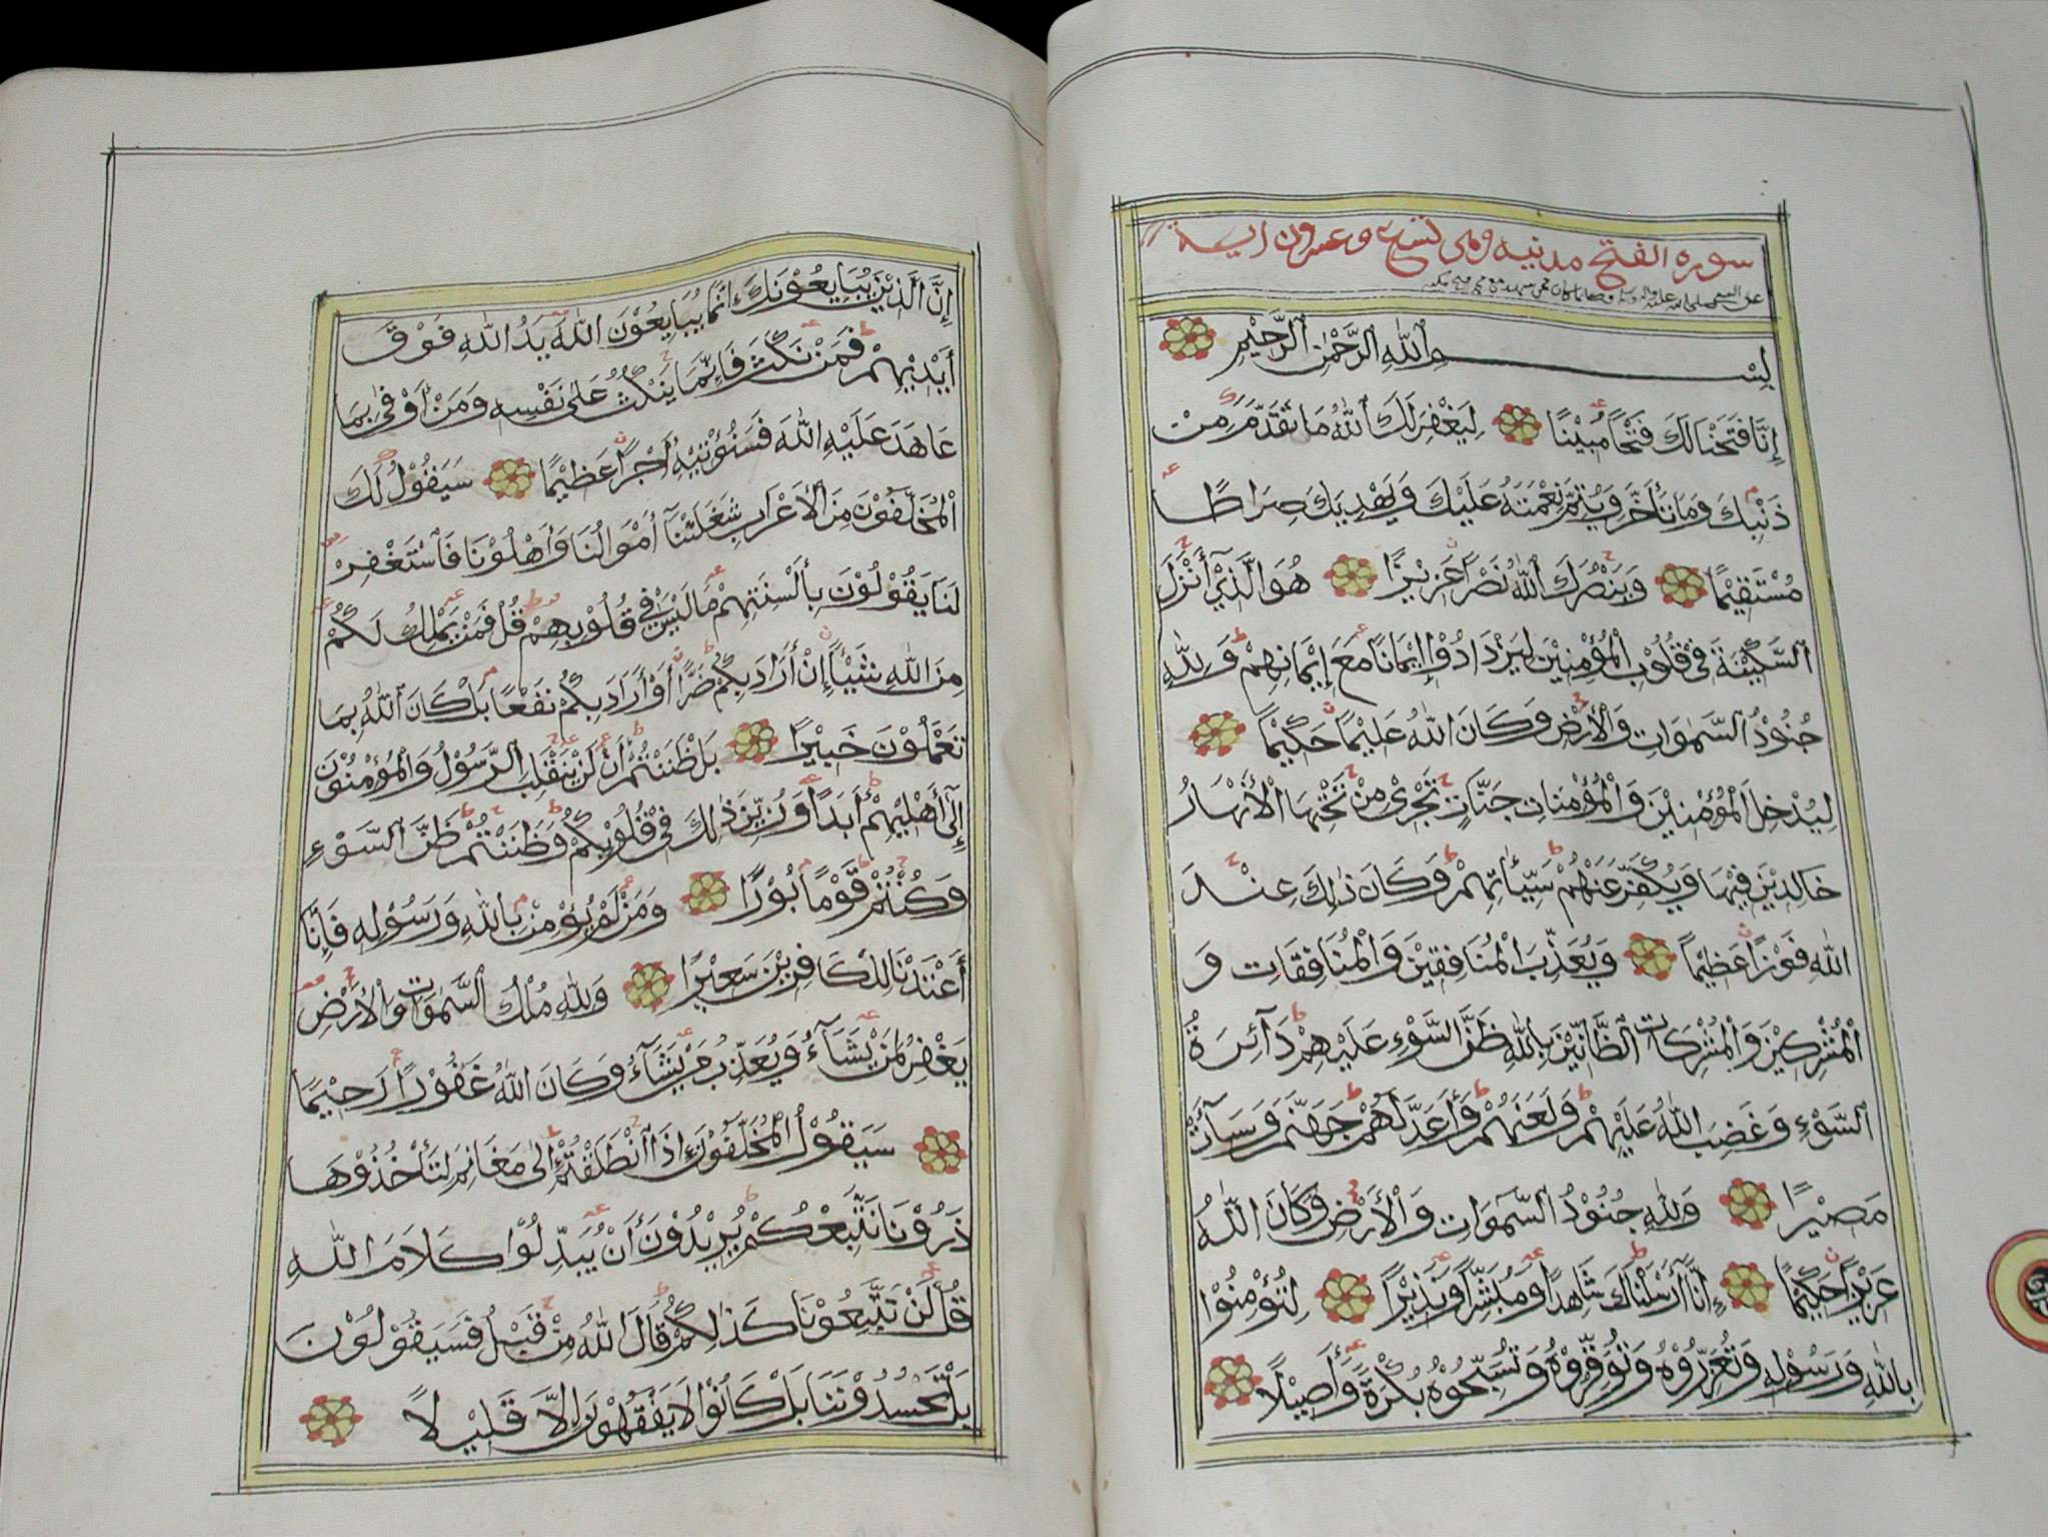 سورة الفتح مدنيه وهى تسع وعشرون اية
عن النبي صلى الله عليه
بِسْمِ اللهِ الرَّحْمٰنِ الرَّحِيْمِ
إِنَّا فَتَحْنَا لَكَ فَتْحًا مُبِيْنًا لِيَغْفِرَ لَكَ اللهُ مَا تَقَدَّمَ مِنْ
ذَنْبِكَ وَمَا تَأَخَّرَ وَيُتِمَّ نِعْمَتَهُ عَلَيْكَ وَيَهْدِيَكَ صِرَاطًا
مُسْتَقِيْمًا وَيَنْصُرَكَ اللهُ نَصْرًا عَزِيْزًا هُوَ الَّذِيْ أَنْزَلَ
السَّكِيْنَةَ فِيْ قُلُوْبِ الْمُؤْمِنِيْنَ لِيَزْدَادُوْا إِيْمَانًا مَعَ إِيْمَانِهِمْ وَلِلّٰهِ
جُنُوْدُ السَّمٰوَاتِ وَالْأَرْضِ وَكَانَ اللهُ عَلِيْمًا حَكِيْمًا
لِيُدْخِلَ الْمُؤْمِنِيْنَ وَالْمُؤْمِنَاتِ جَنَّاتٍ تَجْرِيْ مِنْ تَحْتِهَا الْأَنْهَارُ
خَالِدِيْنَ فِيْهَا وَيُكَفِّرَ عَنْهُمْ سَيِّئَاتِهِمْ وَكَانَ ذٰلِكَ عِنْدَ
اللهِ فَوْزًا عَظِيْمًا وَيُعَذِّبَ الْمُنَافِقِيْنَ وَالْمُنَافِقَاتِ وَ
الْمُشْرِكِيْنَ وَالْمُشْرِكَاتِ الظَّانِّيْنَ بِاللهِ ظَنَّ السَّوْءِ عَلَيْهِمْ دَآئِرَةُ
السَّوْءِ وَغَضِبَ اللهُ عَلَيْهِمْ وَلَعَنَهُمْ وَأَعَدَّ لَهُمْ جَهَنَّمَ وَسَآءَتْ
مَصِيْرًا وَلِلّٰهِ جُنُوْدُ السَّمٰوَاتِ وَالْأَرْضِ وَكَانَ اللهُ
عَزِيْزًا حَكِيْمًا إِنَّآ أَرْسَلْنَاكَ شَاهِدًا وَمُبَشِّرًا وَنَذِيْرًا لِتُؤْمِنُوْا
بِاللهِ وَرَسُوْلِهِ وَتُعَزِّرُوْهُ وَتُوَقِّرُوْهُ وَتُسَبِّحُوْهُ بُكْرَةً وَأَصِيْلًا
إِنَّ الَّذِيْنَ يُبَايِعُوْنَكَ إِنَّمَا يُبَايِعُوْنَ اللهَ يَدُ اللهِ فَوْقَ
أَيْدِيْهِمْ فَمَنْ نَكَثَ فَإِنَّمَا يَنْكُثُ عَلٰى نَفْسِهِ وَمَنْ أَوْفٰى بِمَا
عَاهَدَ عَلَيْهِ اللهَ فَسَنُؤْتِيْهِ أَجْرًا عَظِيْمًا سَيَقُوْلُ لَكَ
الْمُخَلَّفُوْنَ مِنَ الْأَعْرَابِ شَغَلَتْنَآ أَمْوَالُنَا وَأَهْلُوْنَا فَاسْتَغْفِرْ
لَنَا يَقُوْلُوْنَ بِأَلْسِنَتِهِمْ مَا لَيْسَ فِيْ قُلُوْبِهِمْ قُلْ فَمَنْ يَمْلِكُ لَكُمْ
مِنَ اللهِ شَيْئًا إِنْ أَرَادَ بِكُمْ ضَرًّا أَوْ أَرَادَ بِكُمْ نَفْعًا بَلْ كَانَ اللهُ بِمَا
تَعْمَلُوْنَ خَبِيْرًا بَلْ ظَنَنْتُمْ أَنْ لَنْ يَنْقَلِبَ الرَّسُوْلُ وَالْمُؤْمِنُوْنَ
إِلٰٓى أَهْلِيْهِمْ أَبَدًا وَزُيِّنَ ذٰلِكَ فِيْ قُلُوْبِكُمْ وَظَنَنْتُمْ ظَنَّ السَّوْءِ
وَكُنْتُمْ قَوْمًا بُوْرًا وَمَنْ لَمْ يُؤْمِنْ بِاللهِ وَرَسُوْلِهِ فَإِنَّا
أَعْتَدْنَا لِلْكَافِرِيْنَ سَعِيْرًا وَلِلّٰهِ مُلْكُ السَّمٰوَاتِ وَالْأَرْضِ
يَغْفِرُ لِمَنْ يَشَآءُ وَيُعَذِّبُ مَنْ يَشَآءُ وَكَانَ اللهُ غَفُوْرًا رَحِيْمًا
سَيَقُوْلُ الْمُخَلَّفُوْنَ إِذَا انْطَلَقْتُمْ إِلٰى مَغَانِمَ لِتَأْخُذُوْهَا
ذَرُوْنَا نَتَّبِعْكُمْ يُرِيْدُوْنَ أَنْ يُبَدِّلُوْا كَلَامَ اللهِ
قُلْ لَنْ تَتَّبِعُوْنَا كَذٰلِكُمْ قَالَ اللهُ مِنْ قَبْلُ فَسَيَقُوْلُوْنَ
بَلْ تَحْسُدُوْنَنَا بَلْ كَانُوْا لَا يَفْقَهُوْنَ إِلَّا قَلِيْلًا